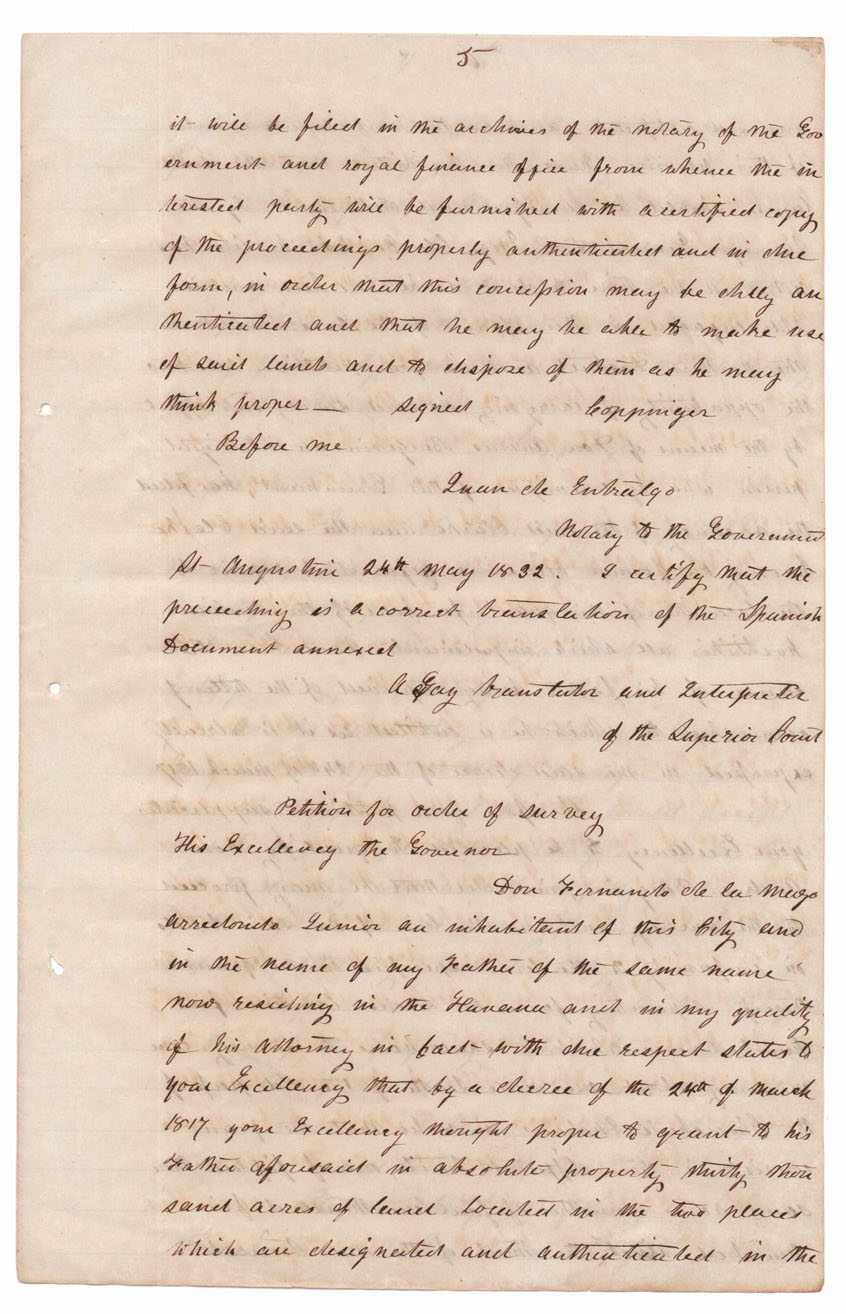 5
it will be filed in the archives of the notary of the Gov
ernment and royal finance office from whence the in
terested party will be furnished with a certified copy
of the proceedings properly authenticated and in due
form, in order that this concession may be duly au
thenticated and that he may be able to make use
of said lands and to dispose of them as he may
think proper — signed Coppinger
Before me
Juan de Entralgo
Notary to the Government
St Augustine 24th May 1832. I certify that the
preceeding is a correct translation of the Spanish
Document annexed
A Gay translator and Interpreter
of the Superior Court
Petition for order of survey
His Excellency the Governor
Don Fernando de la Maza
arredondo Junior an inhabitant of this City and
in the name of my Father of the same name
now residing in the Havana and in my quality
of his attorney in fact with due respect states to
your Excellency that by a decree of the 24th of March
1817 your Excellency thought proper to grant to his
Father aforesaid in absolute property thirty thou
sand acres of land located in the two places
which are designated and authenticated in the